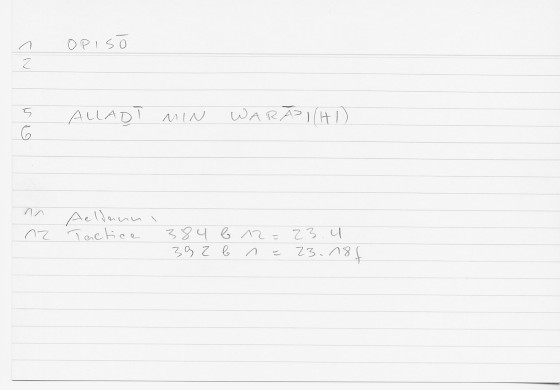 1 OPISŌ
2
5 ALLADṬ MIN WARĀPI(HI)
6
11 Aelianus
12 Tactica 384 b 12 = 23.4
392 b 1 = 23.18f